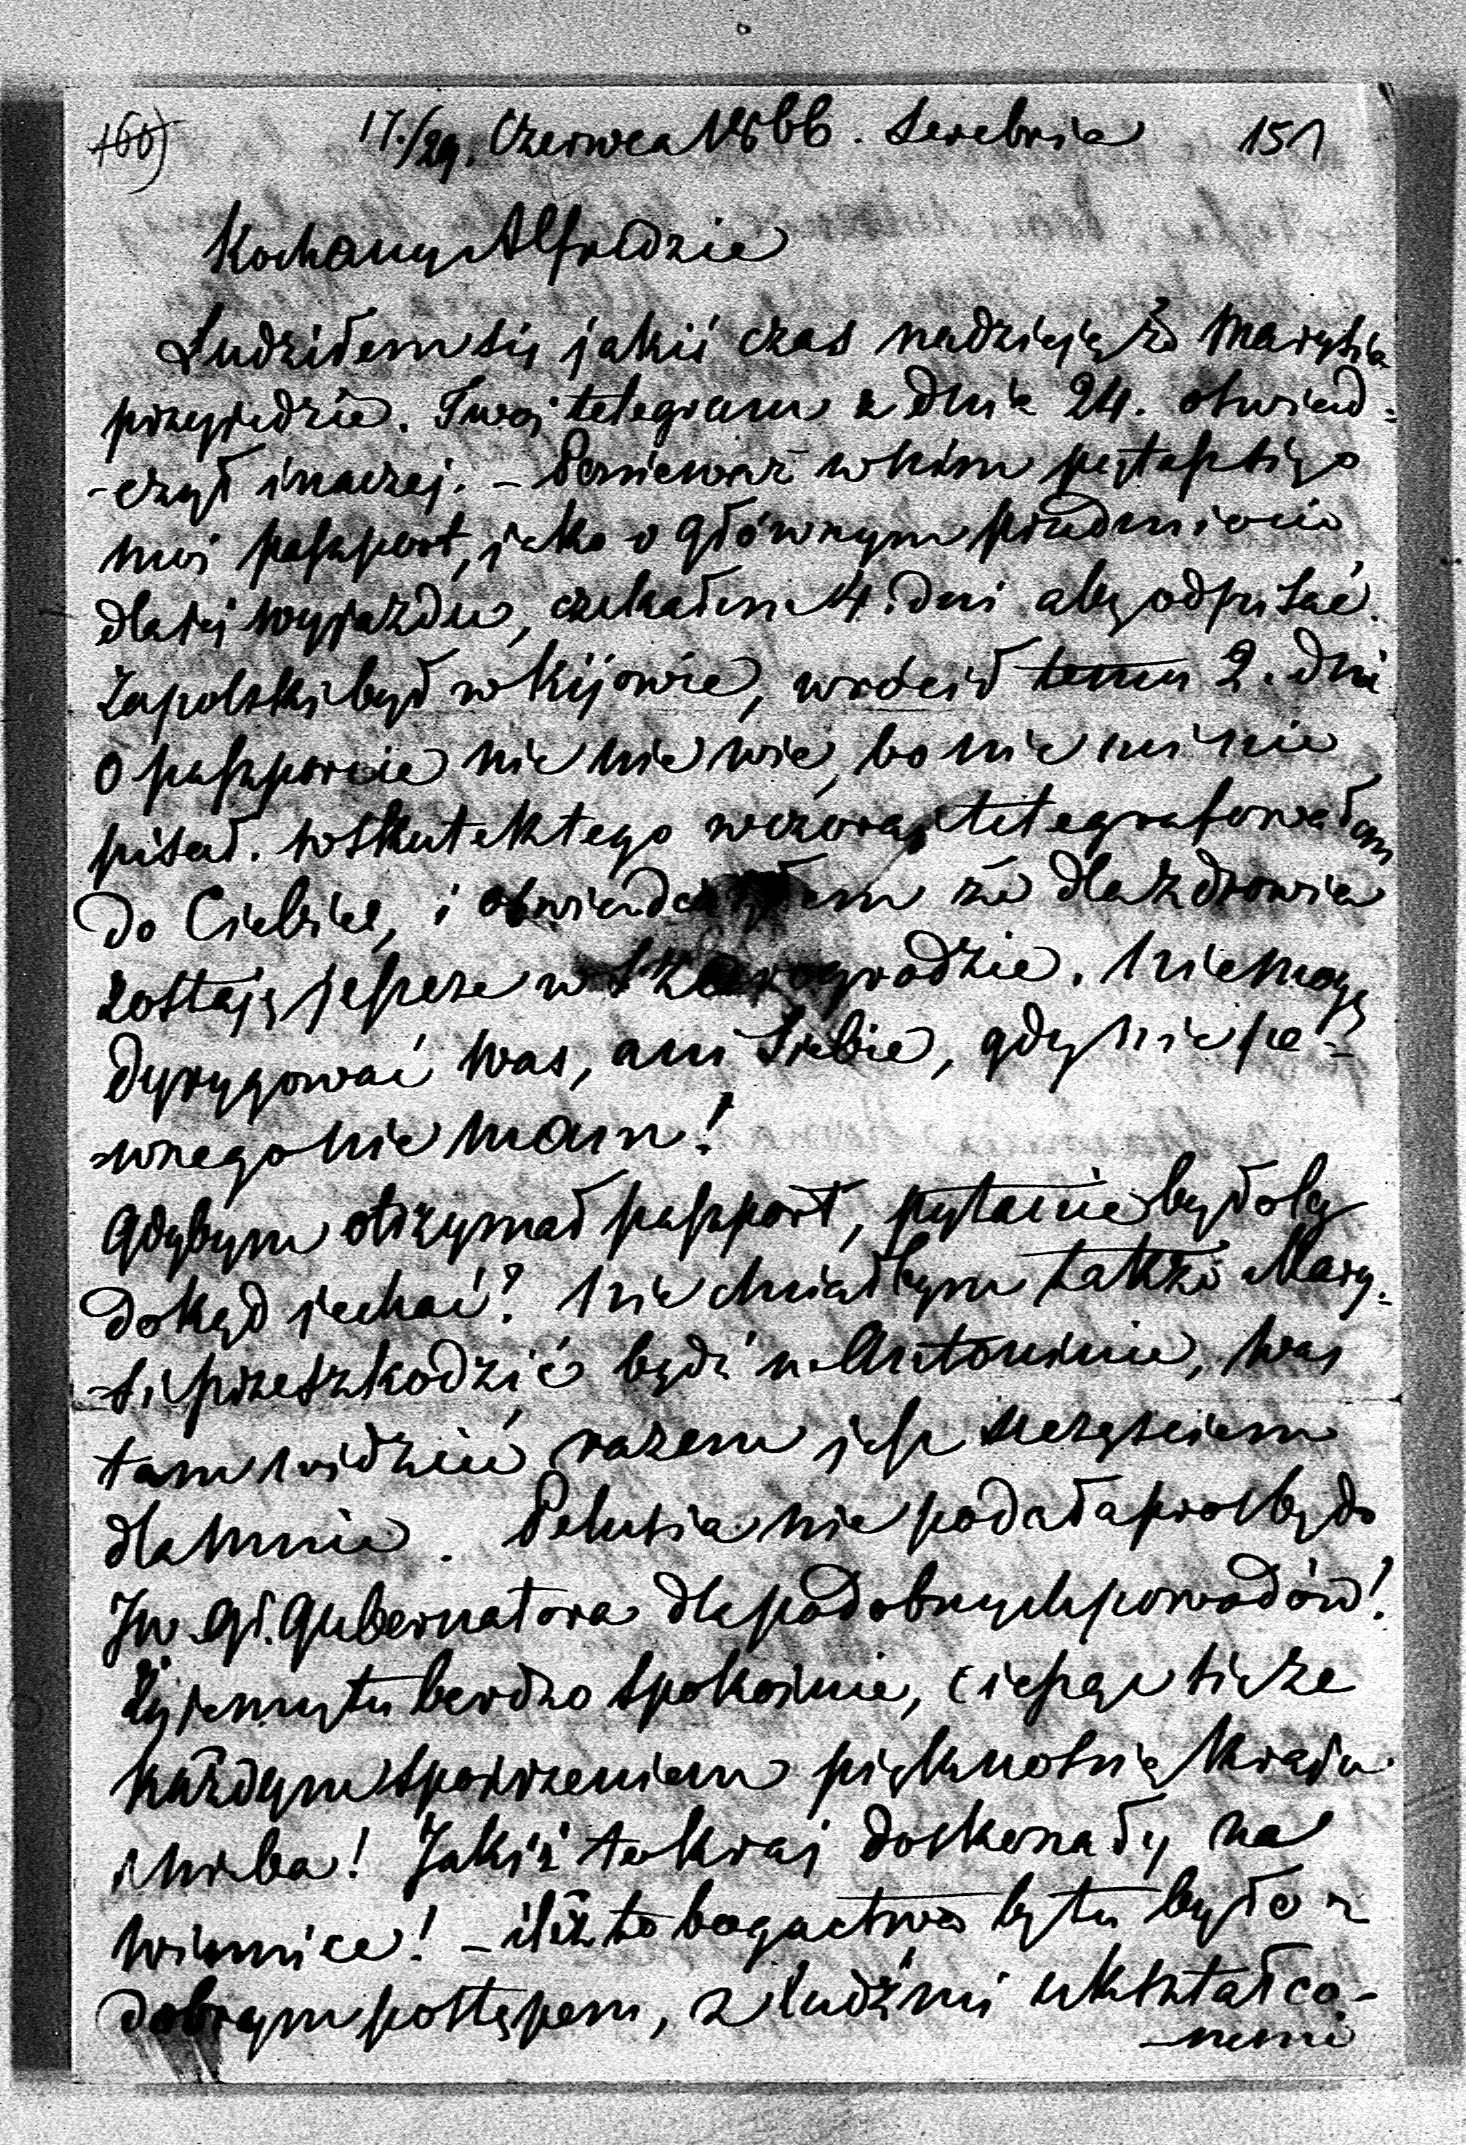 160)
17./29. Czerwca 1866. Serebria 151
Kochany Alfredzie
Łudziłem się jakiś czas nadzieją że Marysia
przyjedzie. Twój telegram z dnia 24. oświad-
-czył inaczej. – Ponieważ w nim pytasz się o
mój paszport, jako o głównym przedmiocie
dla jej wyjazdu, czekałem 4. dni aby odpisać.
Zapolski był w Kijowie, wrócił temu 2. dni
o paszporcie nic nie wie, bo nic mi nie
pisał. Wskutek tego wczoraj telegrafowałem
do Ciebie, i oświadczyłem że dla zdrowia
zostaję jeszcze w Szarogrodzie. Nie mogę
dyrygować Was, ani Siebie, gdy nic pe-
-wnego nie mam!
Gdybym otrzymał paszport, pytanie byłoby
dokąd jechać? Nie chciałbym także Mary-
-si przeszkodzić być w Antoninie, Was
tam widzieć razem jest szczęściem
dla mnie. Pelusia nie podała prośby do
Jw. Gł. Gubernatora dla podobnych powodów!
Żyjemy tu bardzo spokojnie, ciesząc się ze
każdym spojrzeniem pięknością kraju
i nieba! Jakiż to kraj doskonały na
winnice! – ileż to bogactwa by tu było z
dobrym postępem, z ludźmi ukształco-
-nemi